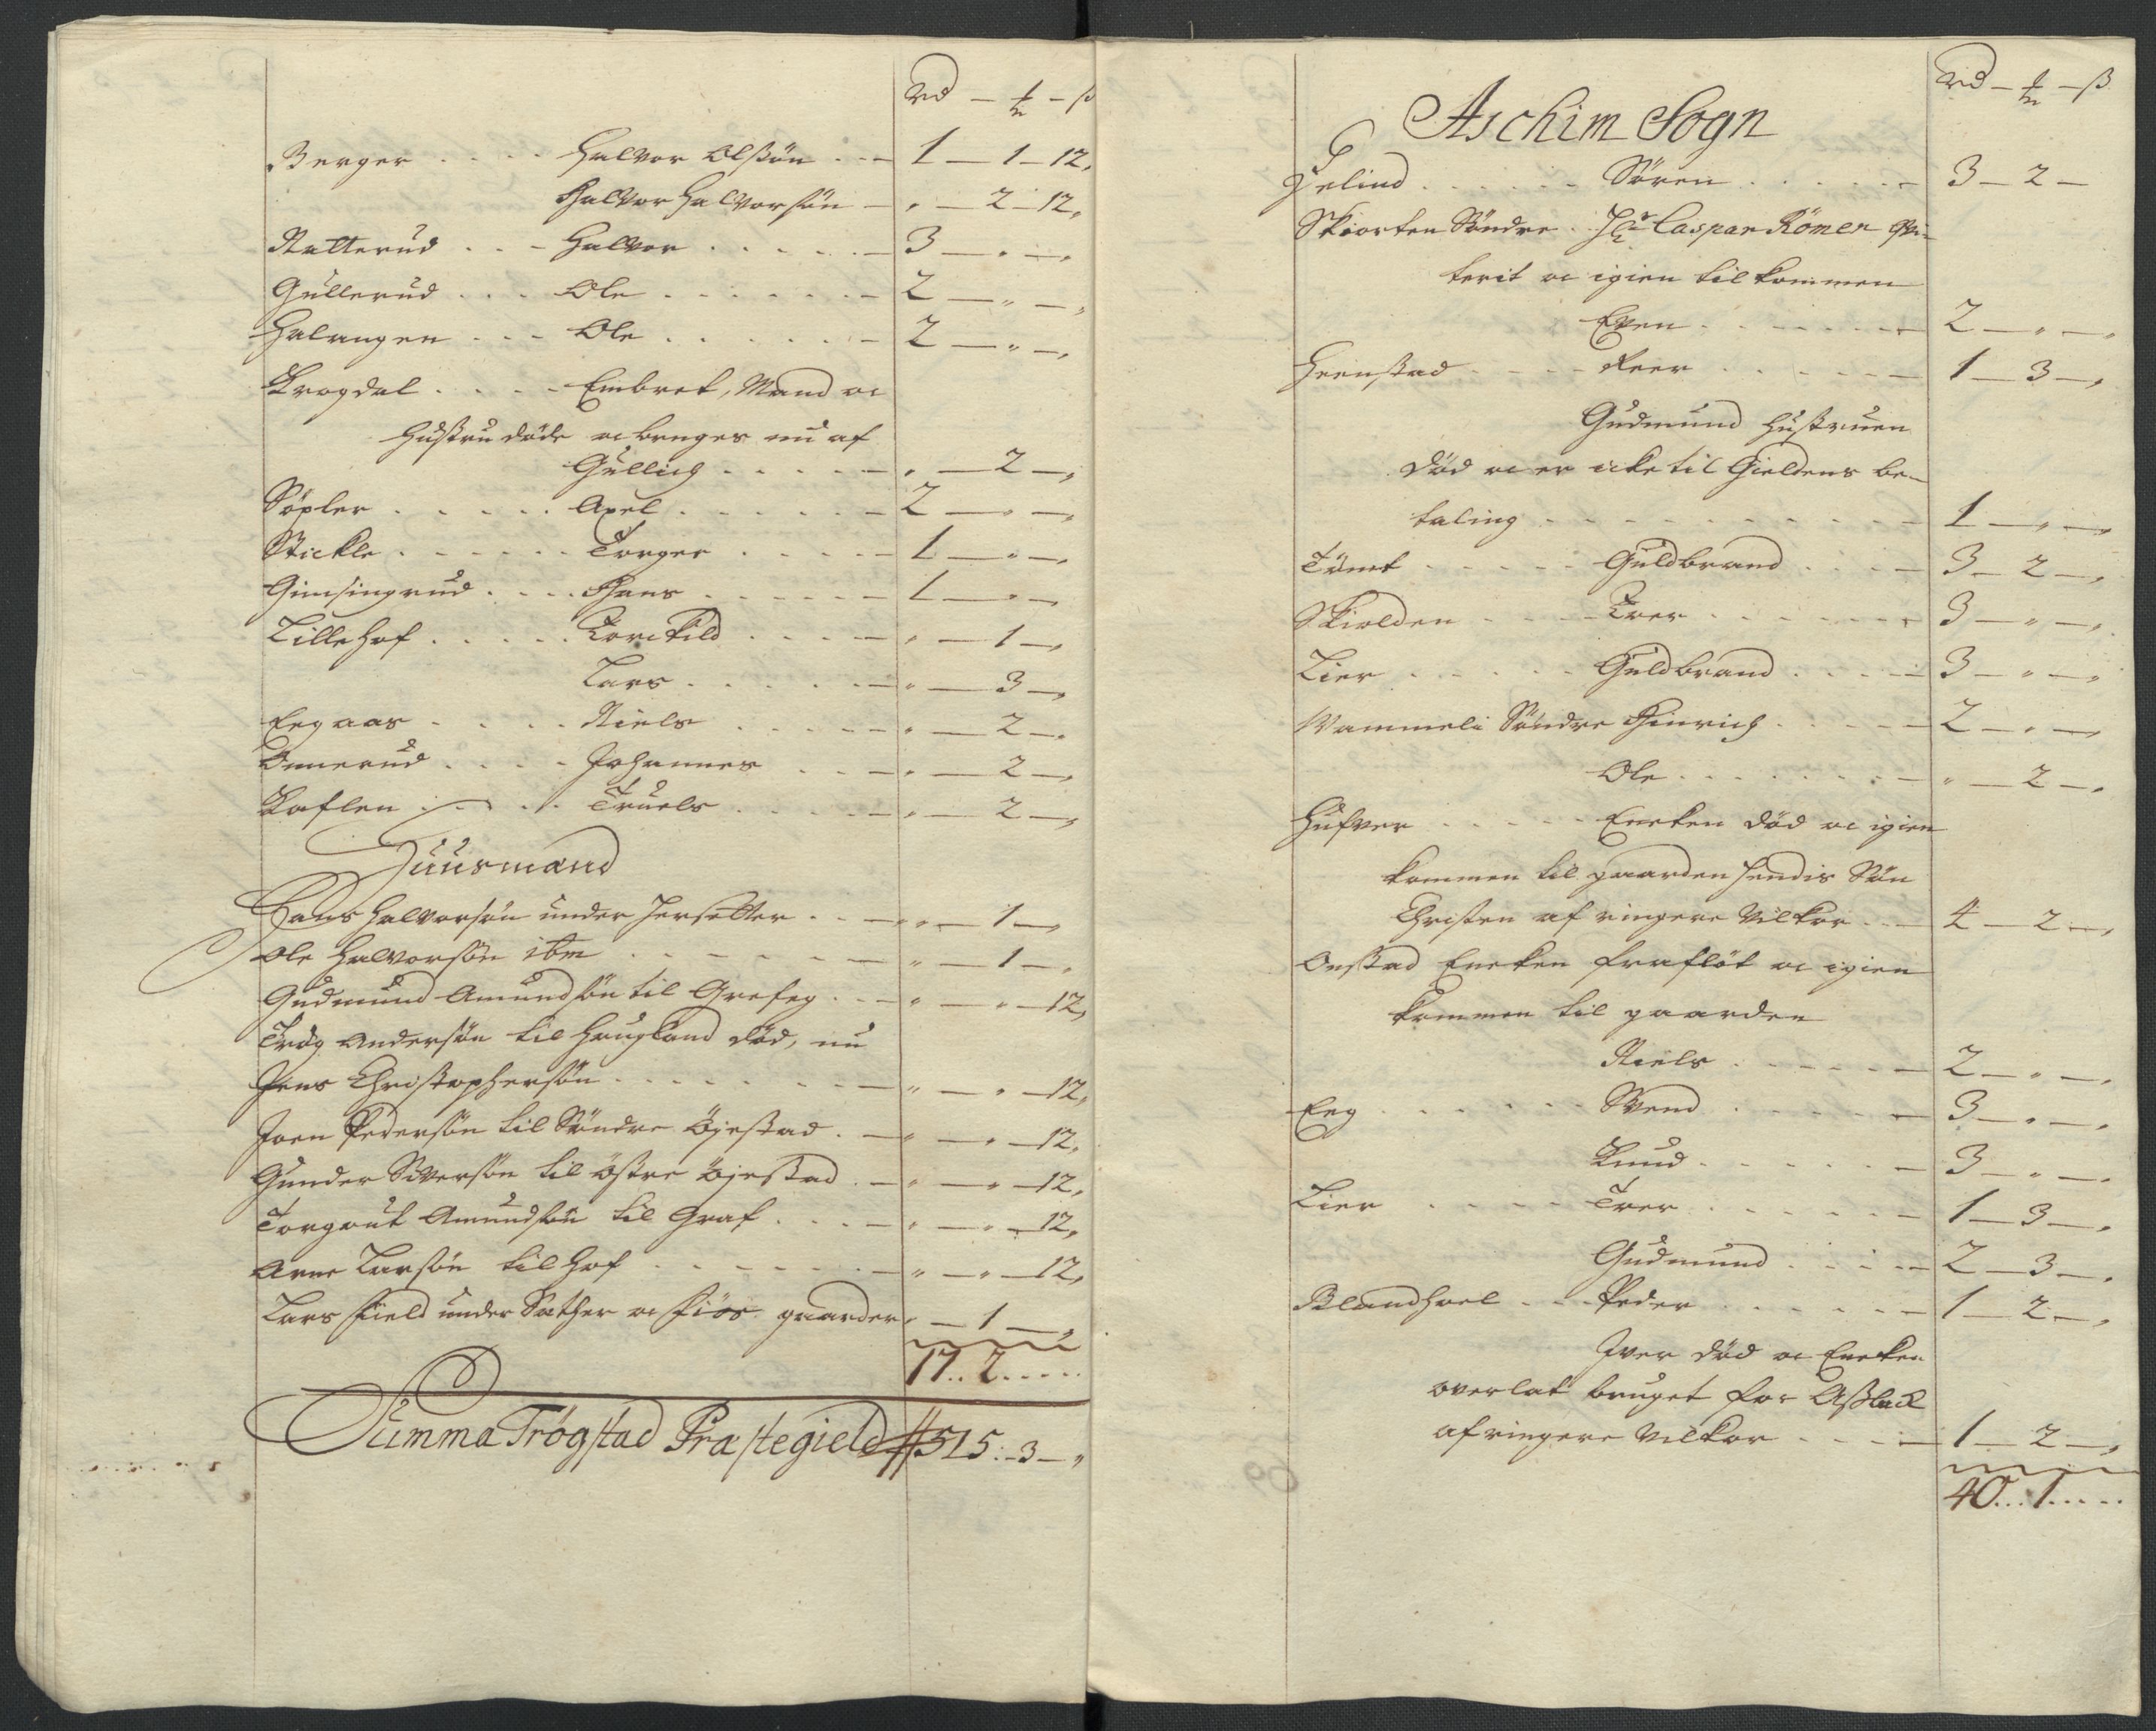 Rd — ort — ß
Berger . . . . Halvor Olssøn . . — 1 — 1 — 12,
Halvor Halvorsøn — „ — 2 — 12,
Ratterud . . . Halvor . . . . . — 3 — „ — „
Gullerud . . . Ole . . . . . . — 2 — „ — „
Halangen . . . Ole . . . . . . — 2 — „ — „
Krogdal . . . . Embret, Mand oc
Hustru døde oc bruges nu af
Gullich . . . . . — „ — 2 — „
Søpler . . . . . Axel . . . . . . — 2 — „ — „
Stickle . . . . . . Torger . . . . . — 1 — „ — „
Gimsingrud . . . . Hans . . . . . . — 1 — „ — „
Lillehof . . . . . Torckild . . . . — „ — 1 — „
Lars . . . . . . — „ — 3 — „
Eegaas . . . . . Niels . . . . . — „ — 2 — „
Onnerud . . . . . Johannes . . — „ — 2 — „
Kaflen . . . . Truels . . . . . — „ — 2 — „
Huusmænd
Hans Halvorsøn under Jersetter . . — „ — 1 — „
Ole Halvorsøn ibm . . . . . . — „ — 1 — „
Gudmund Amundsøn til Grefeg . . — „ — „ — 12,
Andersøn til Haugland død, nu
Jens Christophersøn . . . . . . . — „ — „ — 12,
Joen Pedersøn til Søndre Øjestad . — „ — „ — 12,
Gunder Siversøn til østre Øjestad . — „ — „ — 12,
Torgout Amundsøn til Graf . . . . — „ — „ — 12,
Arne Larsøn til Hof . . . . . . — „ — „ — 12,
Lars field under Sæther oc fiøs gaarder „ — 1 — „
17 . . 2 . . . . .
Summa Trøgstad Præstegield # 515 : — 3 — „
Rd — ort — ß
Aschim Sogn
Gelind . . . . . . . Søren . . . . . . — 3 — 2 —
Skiorten Søndre . Hr Caspar Römer qvi-
terit oc igien tilkommen
Even . . . . . . — 2 — „ — „
Heenstad . . . . Peer . . . . . . — 1 — 3 — „
Gudmund hustruen
død oc er icke til Gieldens be-
taling . . . . . . . . . . . — 1 — „ — „
Tømt . . . . . . Guldbrand . . . . — 3 — 2 — „
Skiolden . . . . Iver . . . . . . . 3 — „ — „
Lier . . . . . . Guldbrand . . . . — 3 — „ — „
Vammeli Søndre Hinrich . . . . . — 2 — „ — „
Ole . . . . . . . — „ — 2 — „
Hufver . . . . . . Encken død oc igien
kommen til gaarden hendis Søn
Christen af ringere Vilkor . . — 4 — 2 — „
Onstad Encken frafløt oc igien
kommen til gaarden
Niels . . . . . . — 2 — „ — „
Eeg . . . . . . . Svend . . . . . — 3 — „ — „
Knud . . . . . . — 3 — „ — „
Lier . . . . . Iver . . . . . . — 1 — 3 — „
Gudmund . . . . — 2 — 3 — „
Blandhoel . . . Peder . . . . . . — 1 — 2 — „
Iver død oc Encken
overlat bruget for Aslack
af ringere Vilkor . . . . — 1 — 2 — „
40 . . . 1 . . . . .